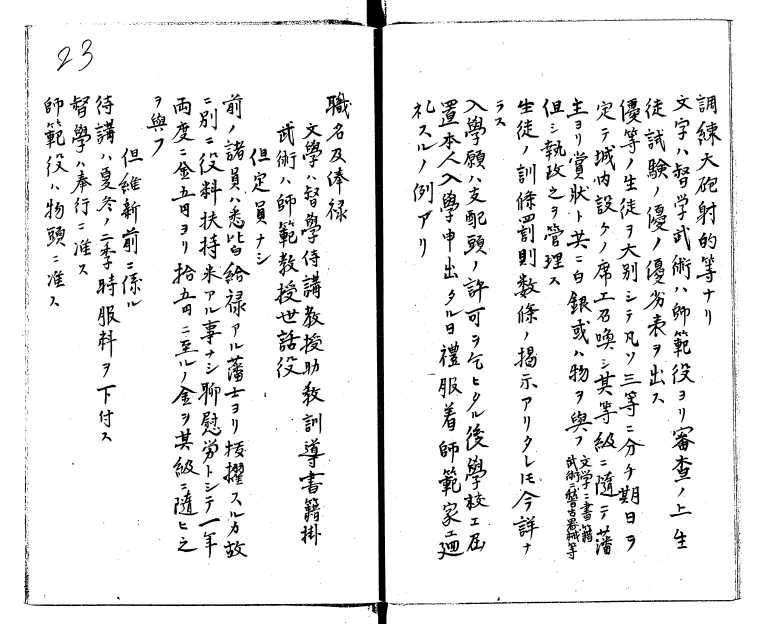 調練大砲射的等ナリ
文字ハ督学武術ハ師範役ヨリ審査ノ上生
徒試験ノ優ノ優劣表ヲ出ス
優等ノ生徒ヲ大別シテ凡ソ三等ニ分チ期日ヲ
定テ城内設ケノ席エ召喚シ其等級ニ随テ藩
主ヨリ賞状ト共ニ白銀或ハ物ヲ與フ 文学ニ書籍 武術ニ稽古器械等
但シ執政之ヲ管理ス
生徒ノ訓條罰則数條ノ掲示アリタレ𪜈今詳ナ
ラス
入學願ハ支配頭ノ許可ヲ乞ヒタル後學校エ届
置本人入學申出タル日禮服着師範家エ廻
礼スルノ例アリ
23
職名及俸禄
文學ハ督學侍講教授助教訓導書籍掛
武術ハ師範教授世話役
但定員ナシ
前ノ諸員ハ悉皆給禄アル藩士ヨリ抜擢スル力故
ニ別ニ役料扶持米アル事ナシ聊慰労トシテ一年
両度ニ金五円ヨリ拾五円ニ至ルノ金ヲ其級ニ随ヒ之
ヲ與フ
但維新前ニ係ル
侍講ハ夏冬ノ二季時服料ヲ下付ス
督學ハ奉行ニ准ス
師範役ハ物頭ニ准ス